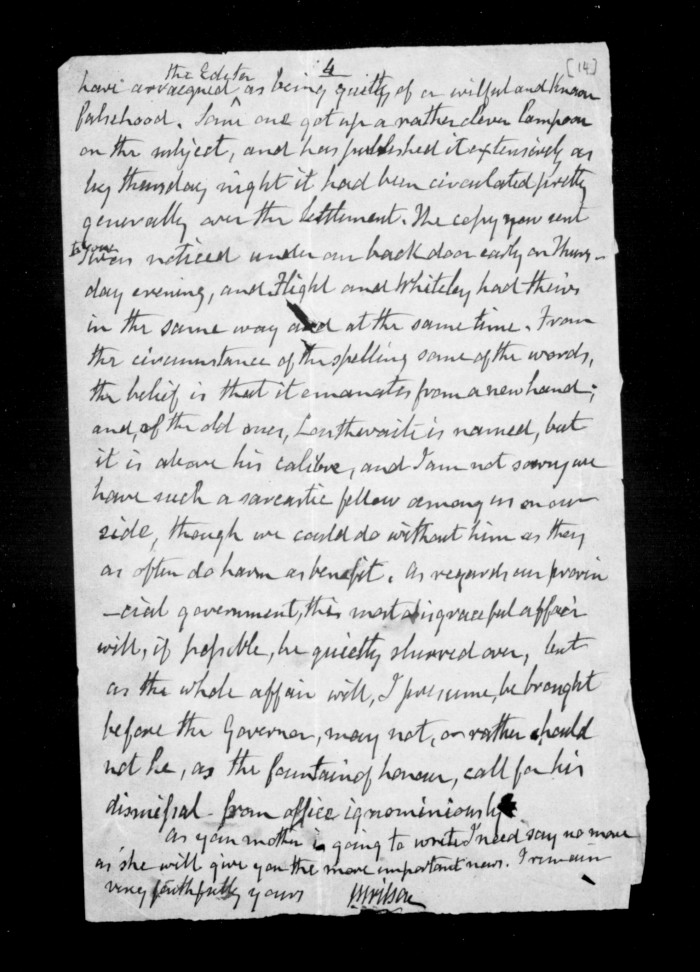 4
[14]
the Editor
have arraigned as being guilty of a wilful and Known
falsehood. Some one got up a rather clever Lampoon
on the subject, and has published it extensively as
by thursday night it had been circulated pretty
generally over the Settlement. The copy now sent
to you
I was noticed under our back door early on Thurs-
day evening, and Flight and Whiteley had theirs
in the same way and at the same time. From
the circumstance of the spelling some of the words,
the belief is that it emanates from a new hand;
and, of the old ones, Louthwaite is named, but
it is above his calibre, and I am not sorry we
have such a sarcastic fellow among us on our
side, though we could do without him as they
as often do harm as benefit. As regards our provin
-cial government, this most disgraceful affair
will, if possible, be quietly slurred over, but
as the whole affair will, I presume, be brought
before the Governor, may not, or rather should
not he, as the fountain of honour, call for his
dismissal from office ignominiously
As your mother is going to write I need say no more
as she will give you the more important news. I remain
very faithfully yours